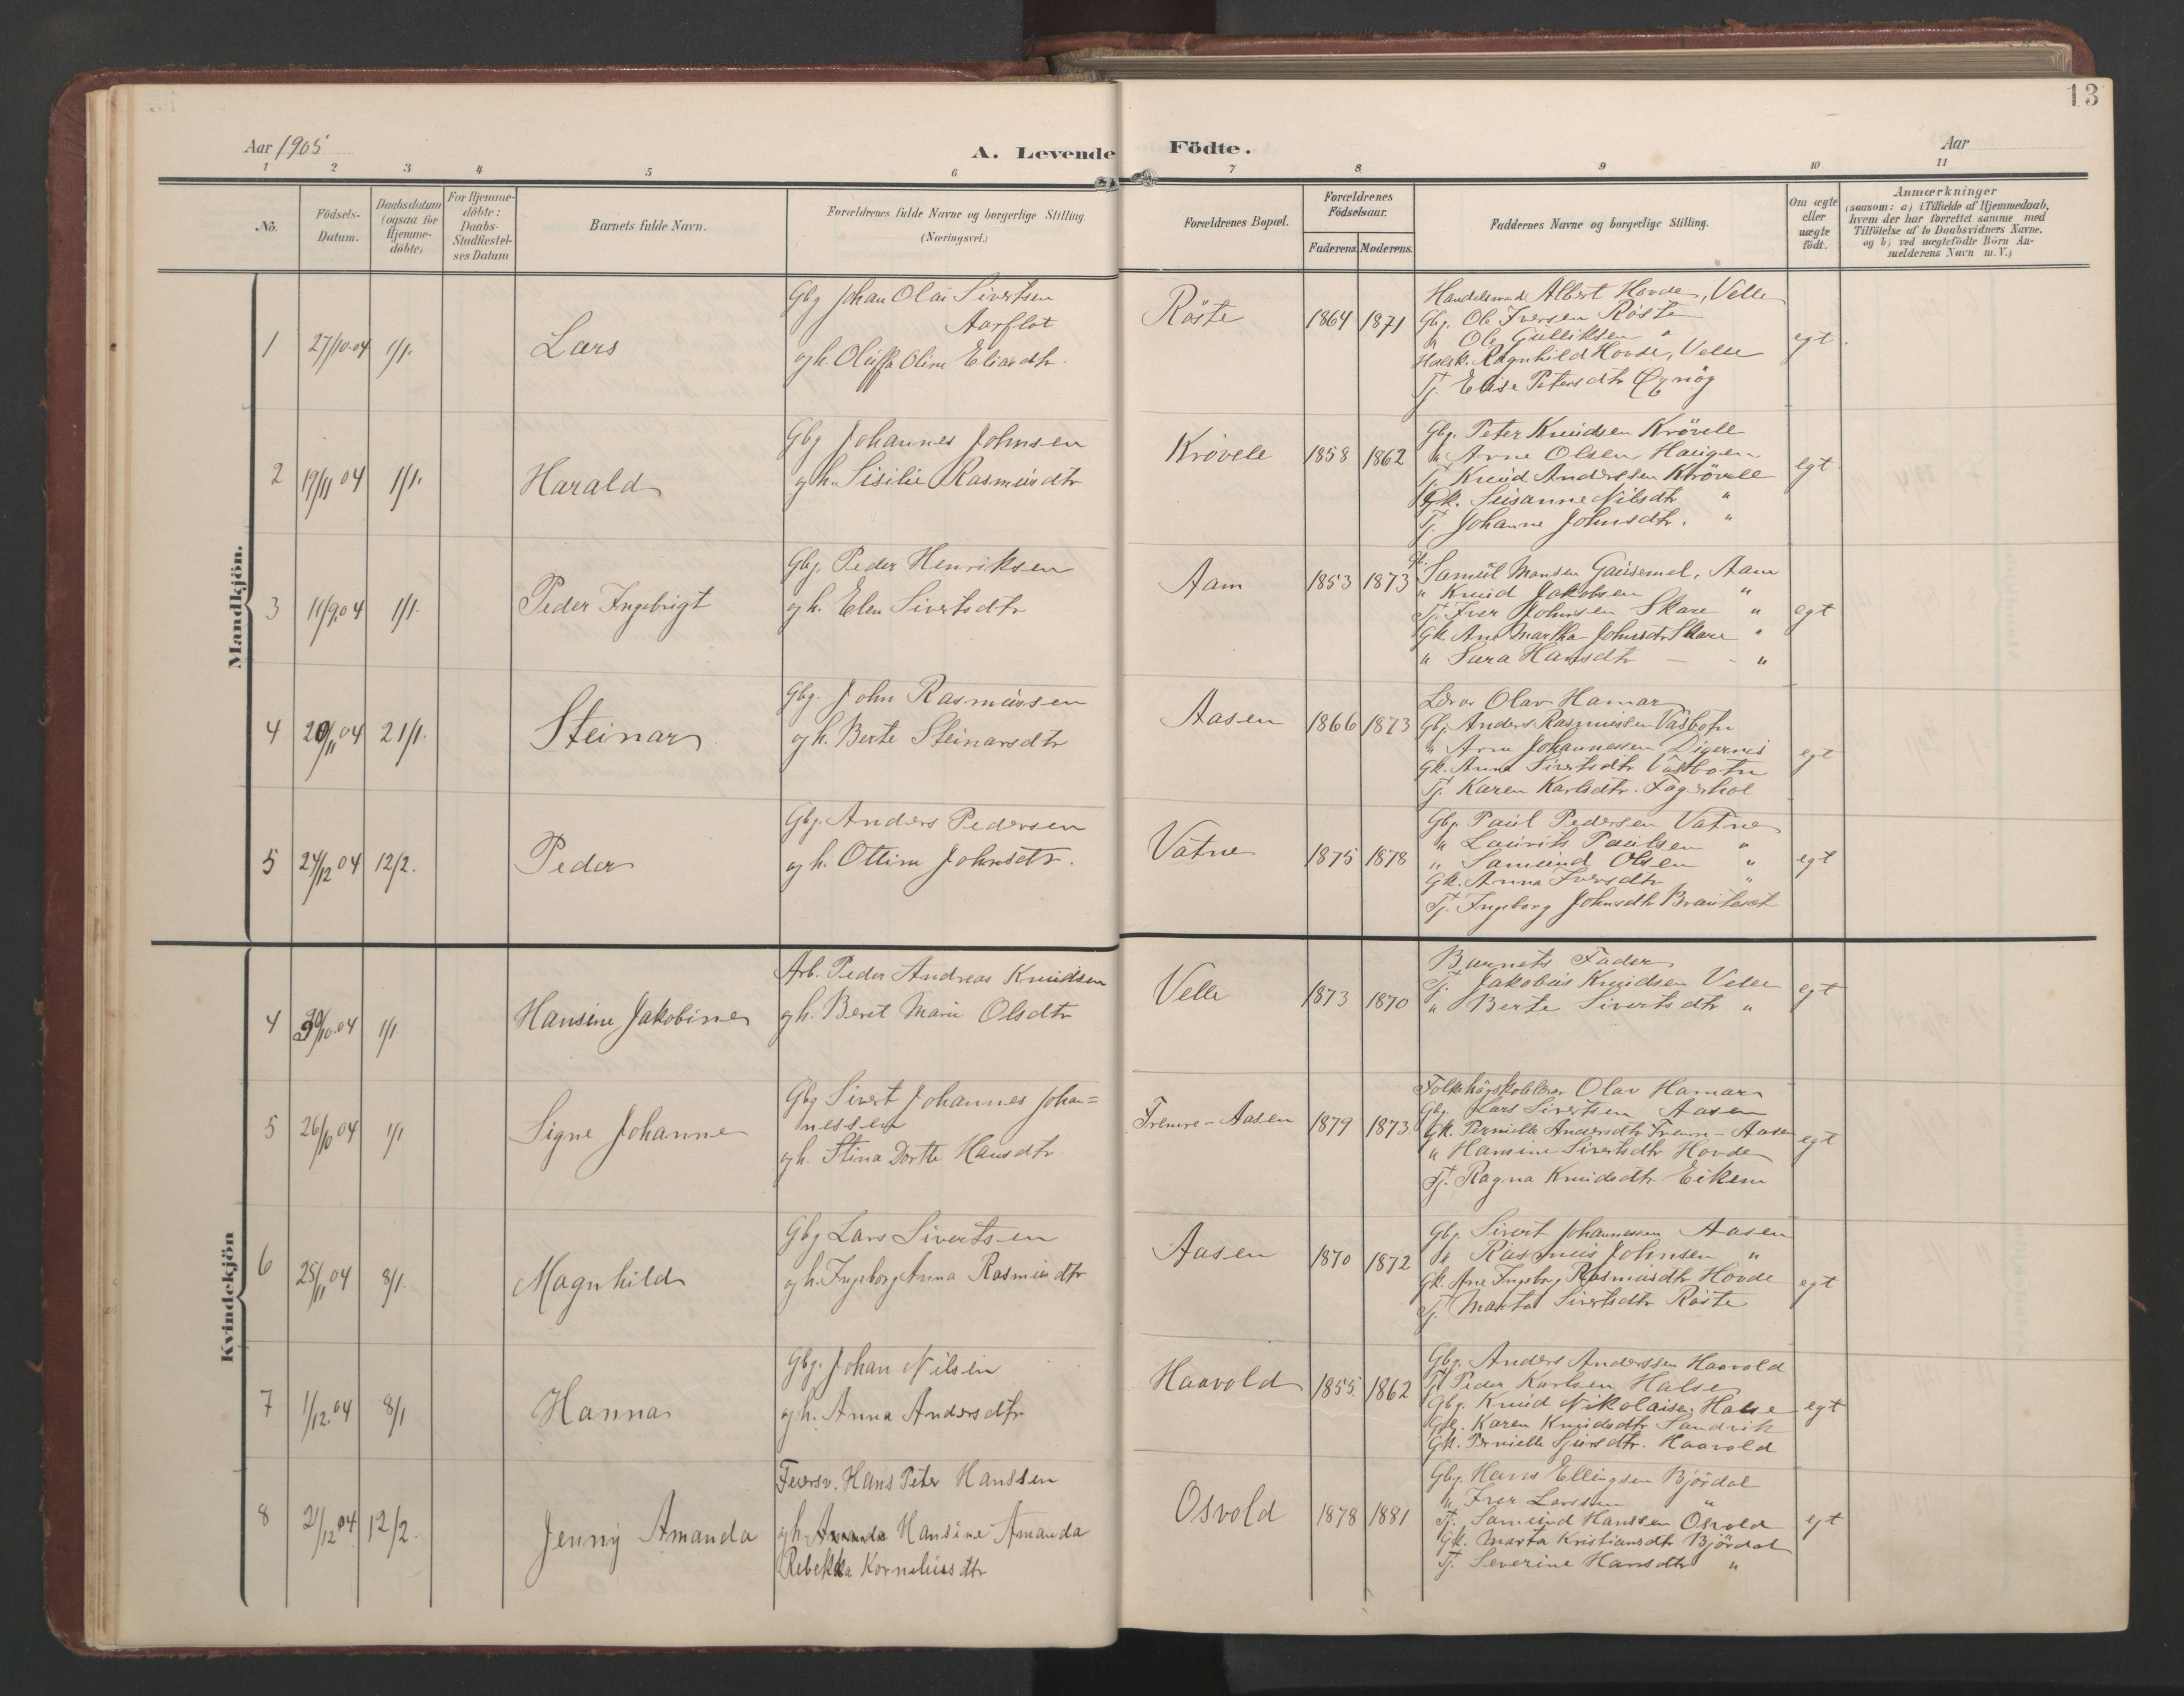 13
Aar 1905
A. Levende Födte.
Aar
1 2 3 4 5 6 7 8 9 10 11
No.
Födsels-Datum.
Daabsdatum (ogsaa for Hjemme-döbte)
For Hjemme-döbte: Daabs-Stadfæstel-ses Datum
Barnets fulde Navn.
Forældrenes fulde Navne og borgerlige Stilling. (Næringsvei.)
Forældrenes Bopæl.
Forældrenes Födselsaar.
Faderens. Moderens.
Faddernes Navne og borgerlige Stilling.
Om ægte eller uægte födt.
Anmærkninger
(saasom: a) i Tilfælde af Hjemmedaab,
hvem der har forrettet samme med
Tilföielse af to Daabsvidners Navne.
og b) ved uægtefödte Börn An-
melderens Navn m. V.)
Mandkjön.
1 27/10.04 1/1. Lars
Gbg Johan Olai Sivertsen
Aarflot
og h. Oluffa Oline Eliasdtr.
Röste 1864 1871
Handelsmand Albert Hovde, Velle
Gbg. Ole Iversen Röste
" Ole Gulliksen "
Ragnhild Hovde, Velle
Tj. Elise Petersdtr
egt.
2 19/11 04 1/1. Harald
Gbg Johannes Johnsen
og h. Sisilie Rasmusdtr
Krövele 1858 1862
Gbg. Peter Knudsen Krövele
" Arne Olsen Haugen
Tj. Knud Anderssen Krövele
Gk. Susanne Nilsdtr "
Tj. Johanne Johnsdtr. "
egt.
3 11/9.04 1/1. Peder Ingebrigt
Gbg. Peder Henriksen
og h. Elen Sivertsdtr
Aam 1853 1873
Samuel Mansen Gausemel, Aam
" Knud Jakobsen "
Tj. Iver Johnsen Skare "
Gk. Ane Martha Johnsdtr Skare "
" Sara Hansdtr — - "
egt
4 20/11 04 21/1. Steinar
Gbg. John Rasmussen
og h. Berte Steinarsdtr
Aasen 1866 1873
Lærer Olav Hamar
Gbg Anders Rasmussen Vasbotn
" Arne Johannessen Digernes
Gk. Anna Sivertsdtr Vasbotn
Tj. Karen Karlsdtr. Fagerhol
egt
5 24/12 04 12/2. Peder
Gbg. Anders Pedersen
og h. Ottine Johnsdtr.
Vatne 1875 1878
Gbg Paul Pedersen Vatne
" Laurits Paulsen "
" Samund Olsen "
Gk. Anna Iversdtr "
Tj. Ingeborg Johnsdtr Brauteset
egt
Kvindekjön
4 30/10.04 1/1 Hansine Jakobine
Arb. Peder Andreas Knudsen
og h. Beret Marie Olsdtr
Velle 1873 1870
Barnets Fader
Tj. Jakobus Knudsen Velle
" Berte Sivertsdtr "
egt
5 26/10 04 1/1 Signe Johanne
Gbg Sivert Johannes Johan=
nessen
og h. Stina Dorthe Hansdtr.
Fremre-Aasen 1879 1873
Folkehögskolelærer Olav Hamar
Gbg. Lars Sivertsen Aasen
Gk. Pernielle Andersdtr Fremre-Aasen
" Hansine Sivertsdtr Hovde
Tj. Ragna Knudsdtr Eikem
egt
6 25/11 04 8/1. Magnhild
Gbg Lars Sivertsen
og h. Ingeborg Anna Rasmusdtr
Aasen 1870 1872
Gbg. Sivert Johannessen Aasen
" Rasmus Johnsen "
Gk. Ane Ingeborg Rasmusdtr Hovde
Tj. Marta Sivertsdtr Röste
egt
7 1/12.04 8/1 Hanna
Gbg. Johan Nilsen
og h. Anna Andersdtr
Haavold 1855 1862
Gbg. Anders Anderssen Haavold
Tj Peder Karlsen Halse
Gbg. Knud Nikolaisen Halse
Gk. Karen Knudsdtr Sandvik
Gk. Pernielle Sjursdtr. Haavold
egt
8 2/12 04 12/2. Jenny Amanda
Feiersv. Hans Peter Hanssen
og h. Hansine Amanda
Rebekka Korneliusdtr
Osvold 1878 1881
Gbg. Hans Ellingsen Björdal
" Iver Larssen "
Tj. Samund Hanssen Osvold
Gk. Marta Kristiansdtr Björdal
Tj. Severine Hansdtr "
egt